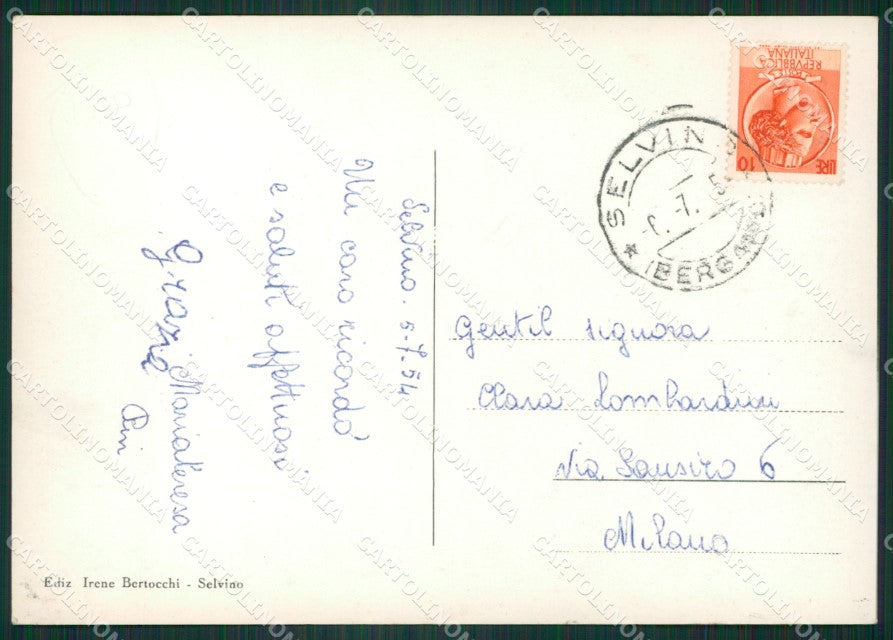 Selvino. 5-7-54
Un caro ricordo
e saluti affettuosi
Grazie Mariateresa
Pin
REPVBBLICA
ITALIANA
POSTE
LIRE 10
SELVINO
-7.5
★ (BERGAMO)
Gentil signora
Clara Lombardini
Via Sansiro 6
Milano
Ediz Irene Bertocchi - Selvino
CARTOLINOMANIA